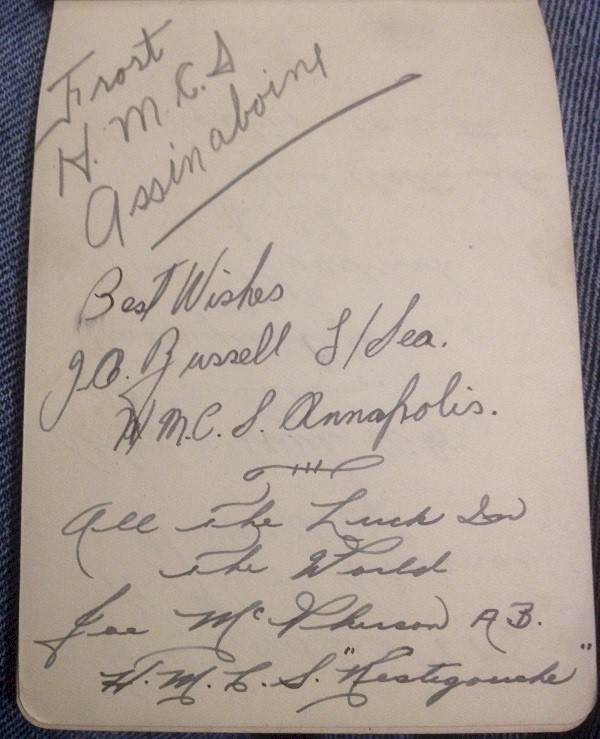 Frost
H.M.C.S
Assinaboine
Best Wishes
J.O. Russell L/Sea.
H.M.C.S. Annapolis.
All The Luck In
The World
Joe McPherson A.B.
H.M.C.S. "Restigouche"